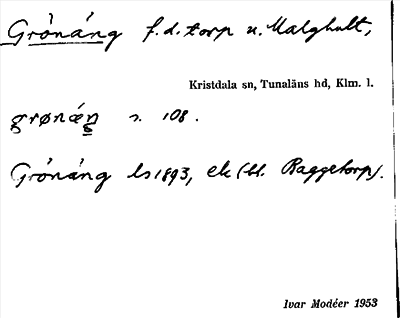 Grönäng f.d. torp u. Malghult,
Kristdala sn, Tunaläns hd, Klm. l.
grønæŋ s. 108.
Grönäng ls 1893, ek (bl. Baggetorp).
Ivar Modéer 1953